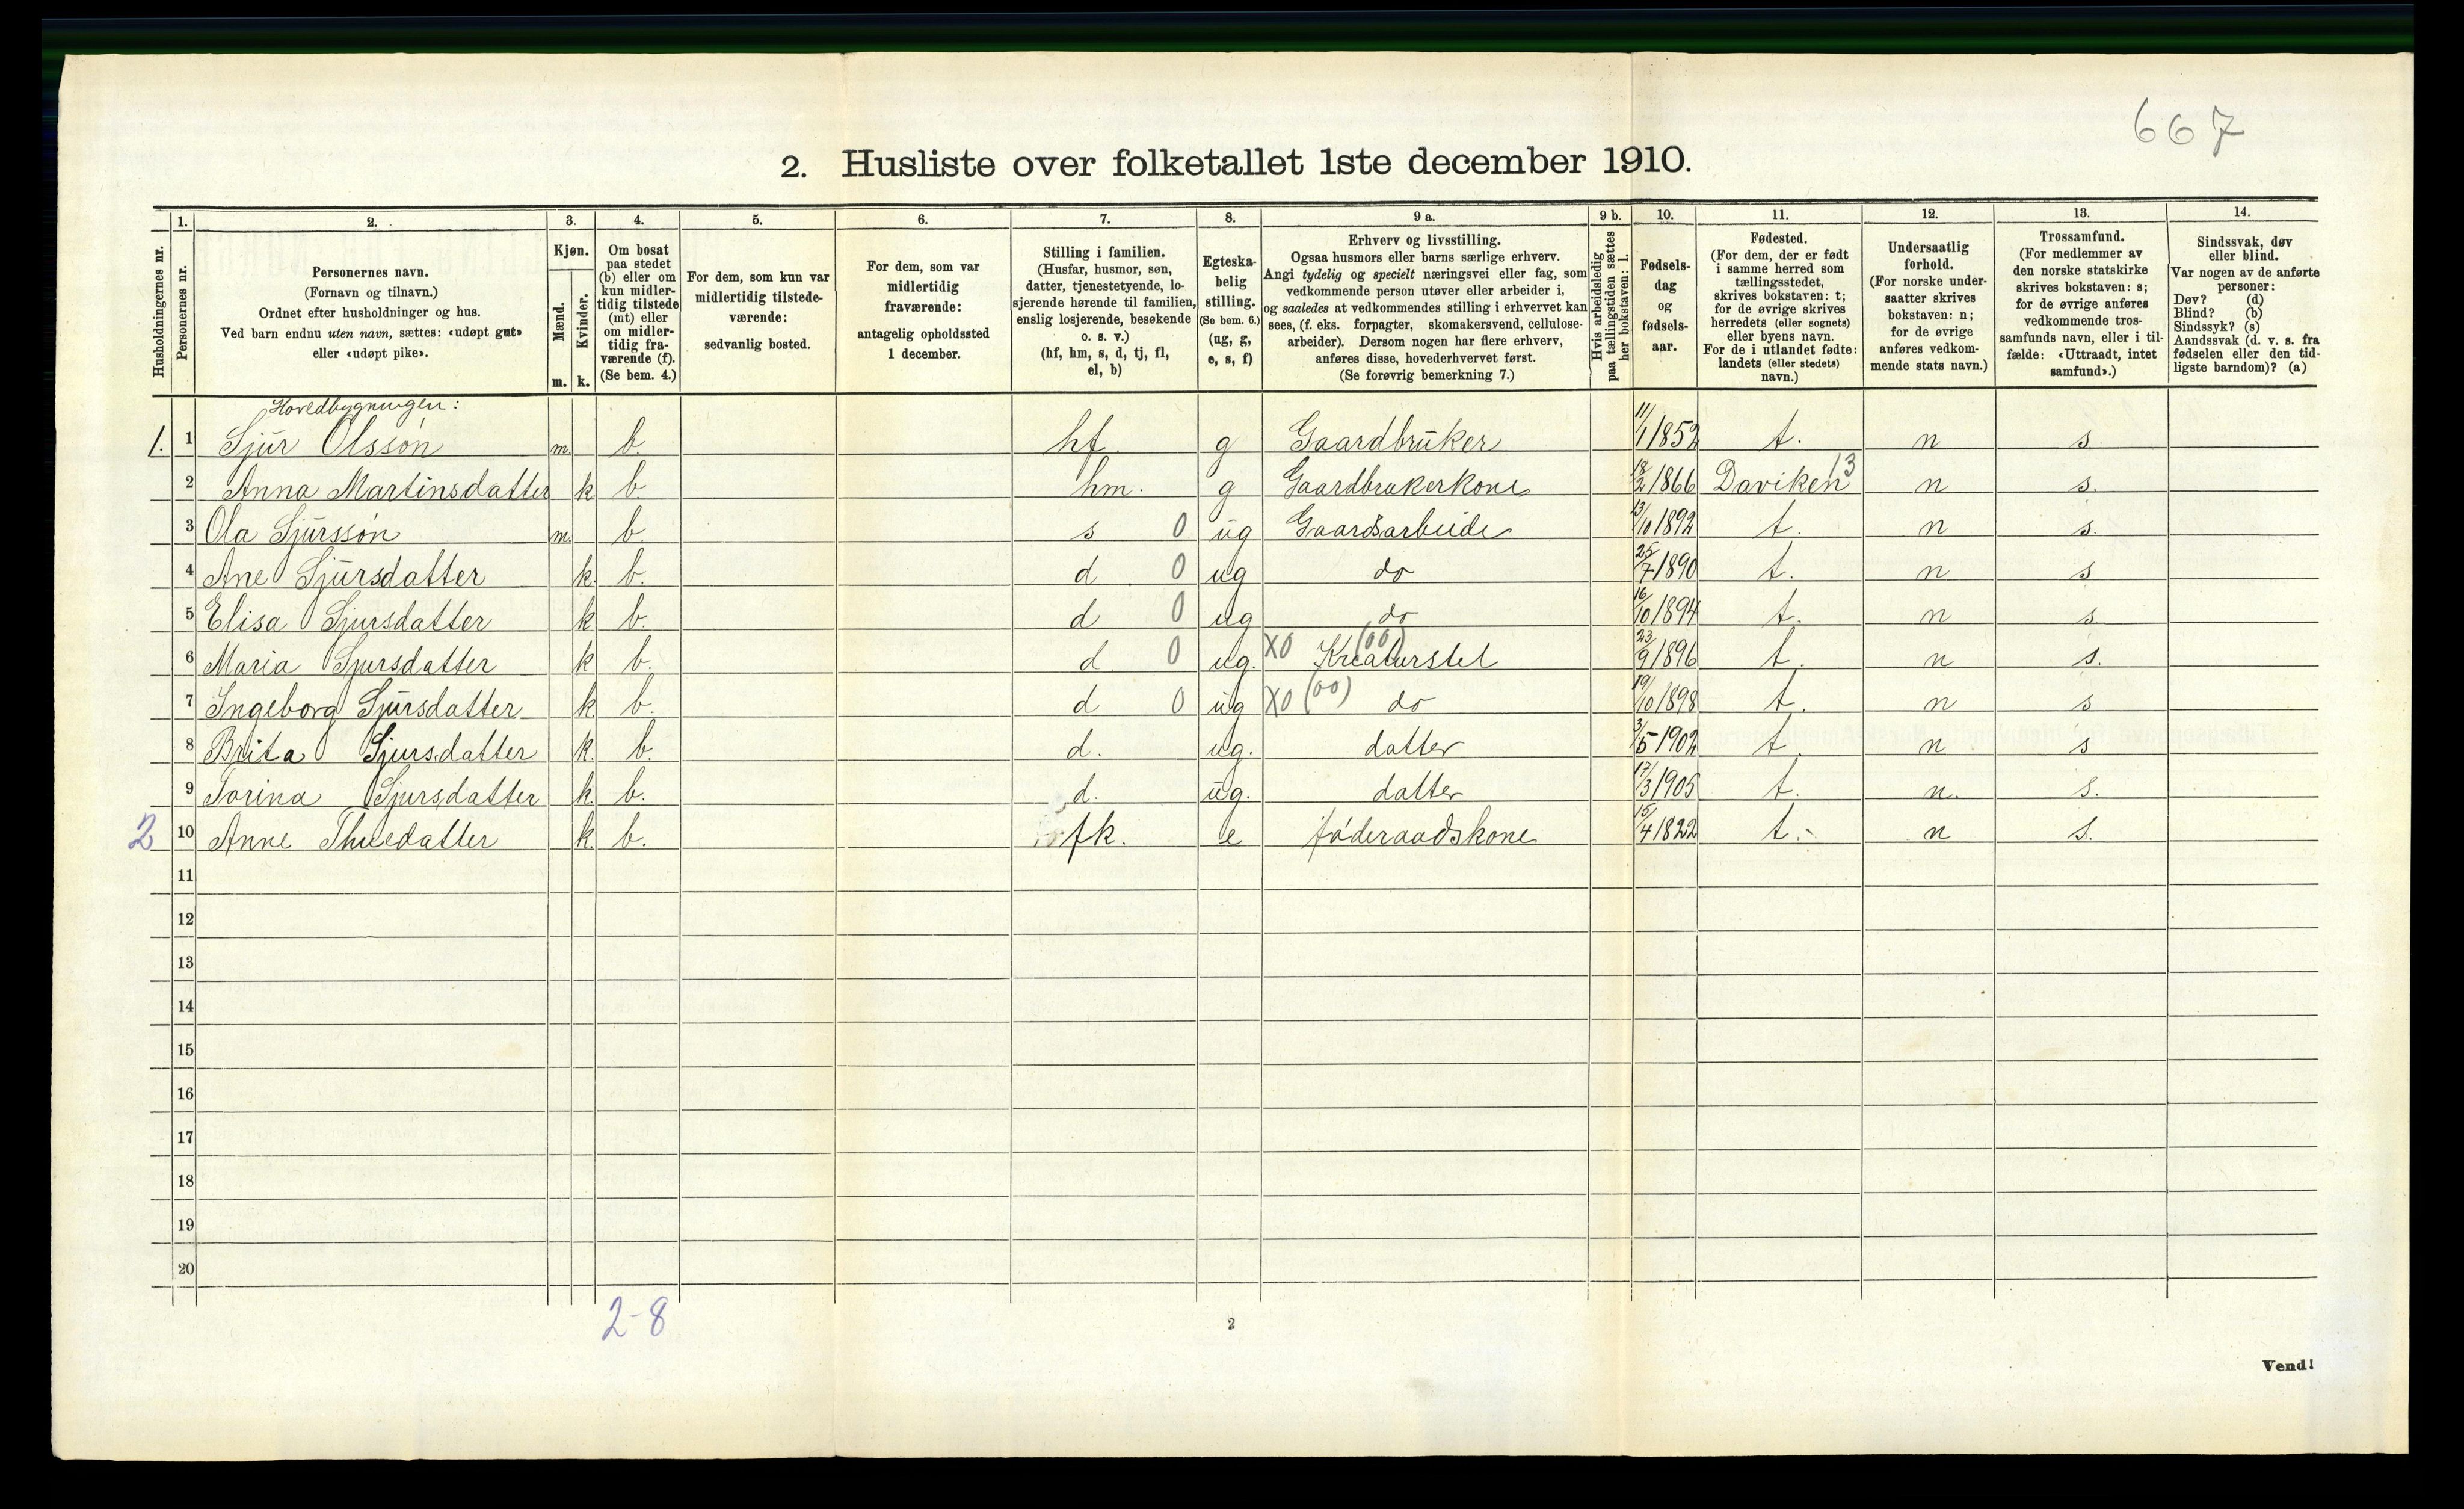 667
2. Husliste over folketallet 1ste december 1910.
Husholdningernes nr.
1.
Personernes nr.
2.
Personernes navn.
(Fornavn og tilnavn.)
Ordnet efter husholdninger og hus.
Ved barn endnu uten navn, sættes: «udøpt gut»
eller «udøpt pike».
3.
Kjøn.
Mænd.
Kvinder.
m. k.
4.
Om bosat
paa stedet
(b) eller om
kun midler-
tidig tilstede
(mt) eller
om midler-
tidig fra-
værende (f).
(Se bem. 4.)
5.
For dem, som kun var
midlertidig tilstede-
værende:
sedvanlig bosted.
6.
For dem, som var
midlertidig
fraværende:
antagelig opholdssted
1 december.
7.
Stilling i familien.
(Husfar, husmor, søn,
datter, tjenestetyende, lo-
sjerende hørende til familien,
enslig losjerende, besøkende
o. s. v.)
(hf, hm, s, d, tj, fl,
el, b)
8.
Egteska-
belig
stilling.
(Se bem. 6.)
(ug, g,
e, s, f)
9 a.
Erhverv og livsstilling.
Ogsaa husmors eller barns særlige erhverv.
Angi tydelig og specielt næringsvei eller fag, som
vedkommende person utøver eller arbeider i,
og saaledes at vedkommendes stilling i erhvervet kan
sees, (f. eks. forpagter, skomakersvend, cellulose-
arbeider). Dersom nogen har flere erhverv,
anføres disse, hovederhvervet først.
(Se forøvrig bemerkning 7.)
9 b.
Hvis arbeidsledig
paa tællingstiden sættes
her bokstaven: l.
10.
Fødsels-
dag
og
fødsels-
aar.
11.
Fødested.
(For dem, der er født
i samme herred som
tællingsstedet,
skrives bokstaven: t;
for de øvrige skrives
herredets (eller sognets)
eller byens navn.
For de i utlandet fødte:
landets (eller stedets)
navn.)
12.
Undersaatlig
forhold.
(For norske under-
saatter skrives
bokstaven: n;
for de øvrige
anføres vedkom-
mende stats navn.)
13.
Trossamfund.
(For medlemmer av
den norske statskirke
skrives bokstaven: s;
for de øvrige anføres
vedkommende tros-
samfunds navn, eller i til-
fælde: «Uttraadt, intet
samfund».)
14.
Sindssvak, døv
eller blind.
Var nogen av de anførte
personer:
Døv? (d)
Blind? (b)
Sindssyk? (s)
Aandssvak (d. v. s. fra
fødselen eller den tid-
ligste barndom)? (a)
Hovedbygningen:
1. 1 Sjur Olssøn m. b. hf. g Gaardbruker 11/1 1852 t. n s.
2 Anna Martinsdatter k b. hm. g Gaardbrukerkone 18/2 1866 Daviken 13 n s.
3 Ola Sjurssøn m. b. s 0 ug Gaardsarbeide 13/10 1892 t. n s.
4 Ane Sjursdatter k. b. d 0 ug do 25/7 1890 t. n s
5 Elisa Sjursdatter k b. d 0 ug do 16/10 1894 t. n s.
6 Maria Sjursdatter k b. d. 0 ug. X0 (00) Kreaturstel 23/9 1896 t. n s.
7 Ingeborg Sjursdatter k b. d 0 ug X0 (00) do 19/10 1898 t. n s
8 Brita Sjursdatter k. b. d. ug. datter 3/5 1902 t. n s
9 Torina Sjursdatter k. b. d. ug. datter 17/3 1905 t. n. s.
2 10 Anne k. b. fk. e føderaadskone 15/4 1822 t. n s.
11
12
13
14
15
16
17
18
19
20
2-8
2
Vend!